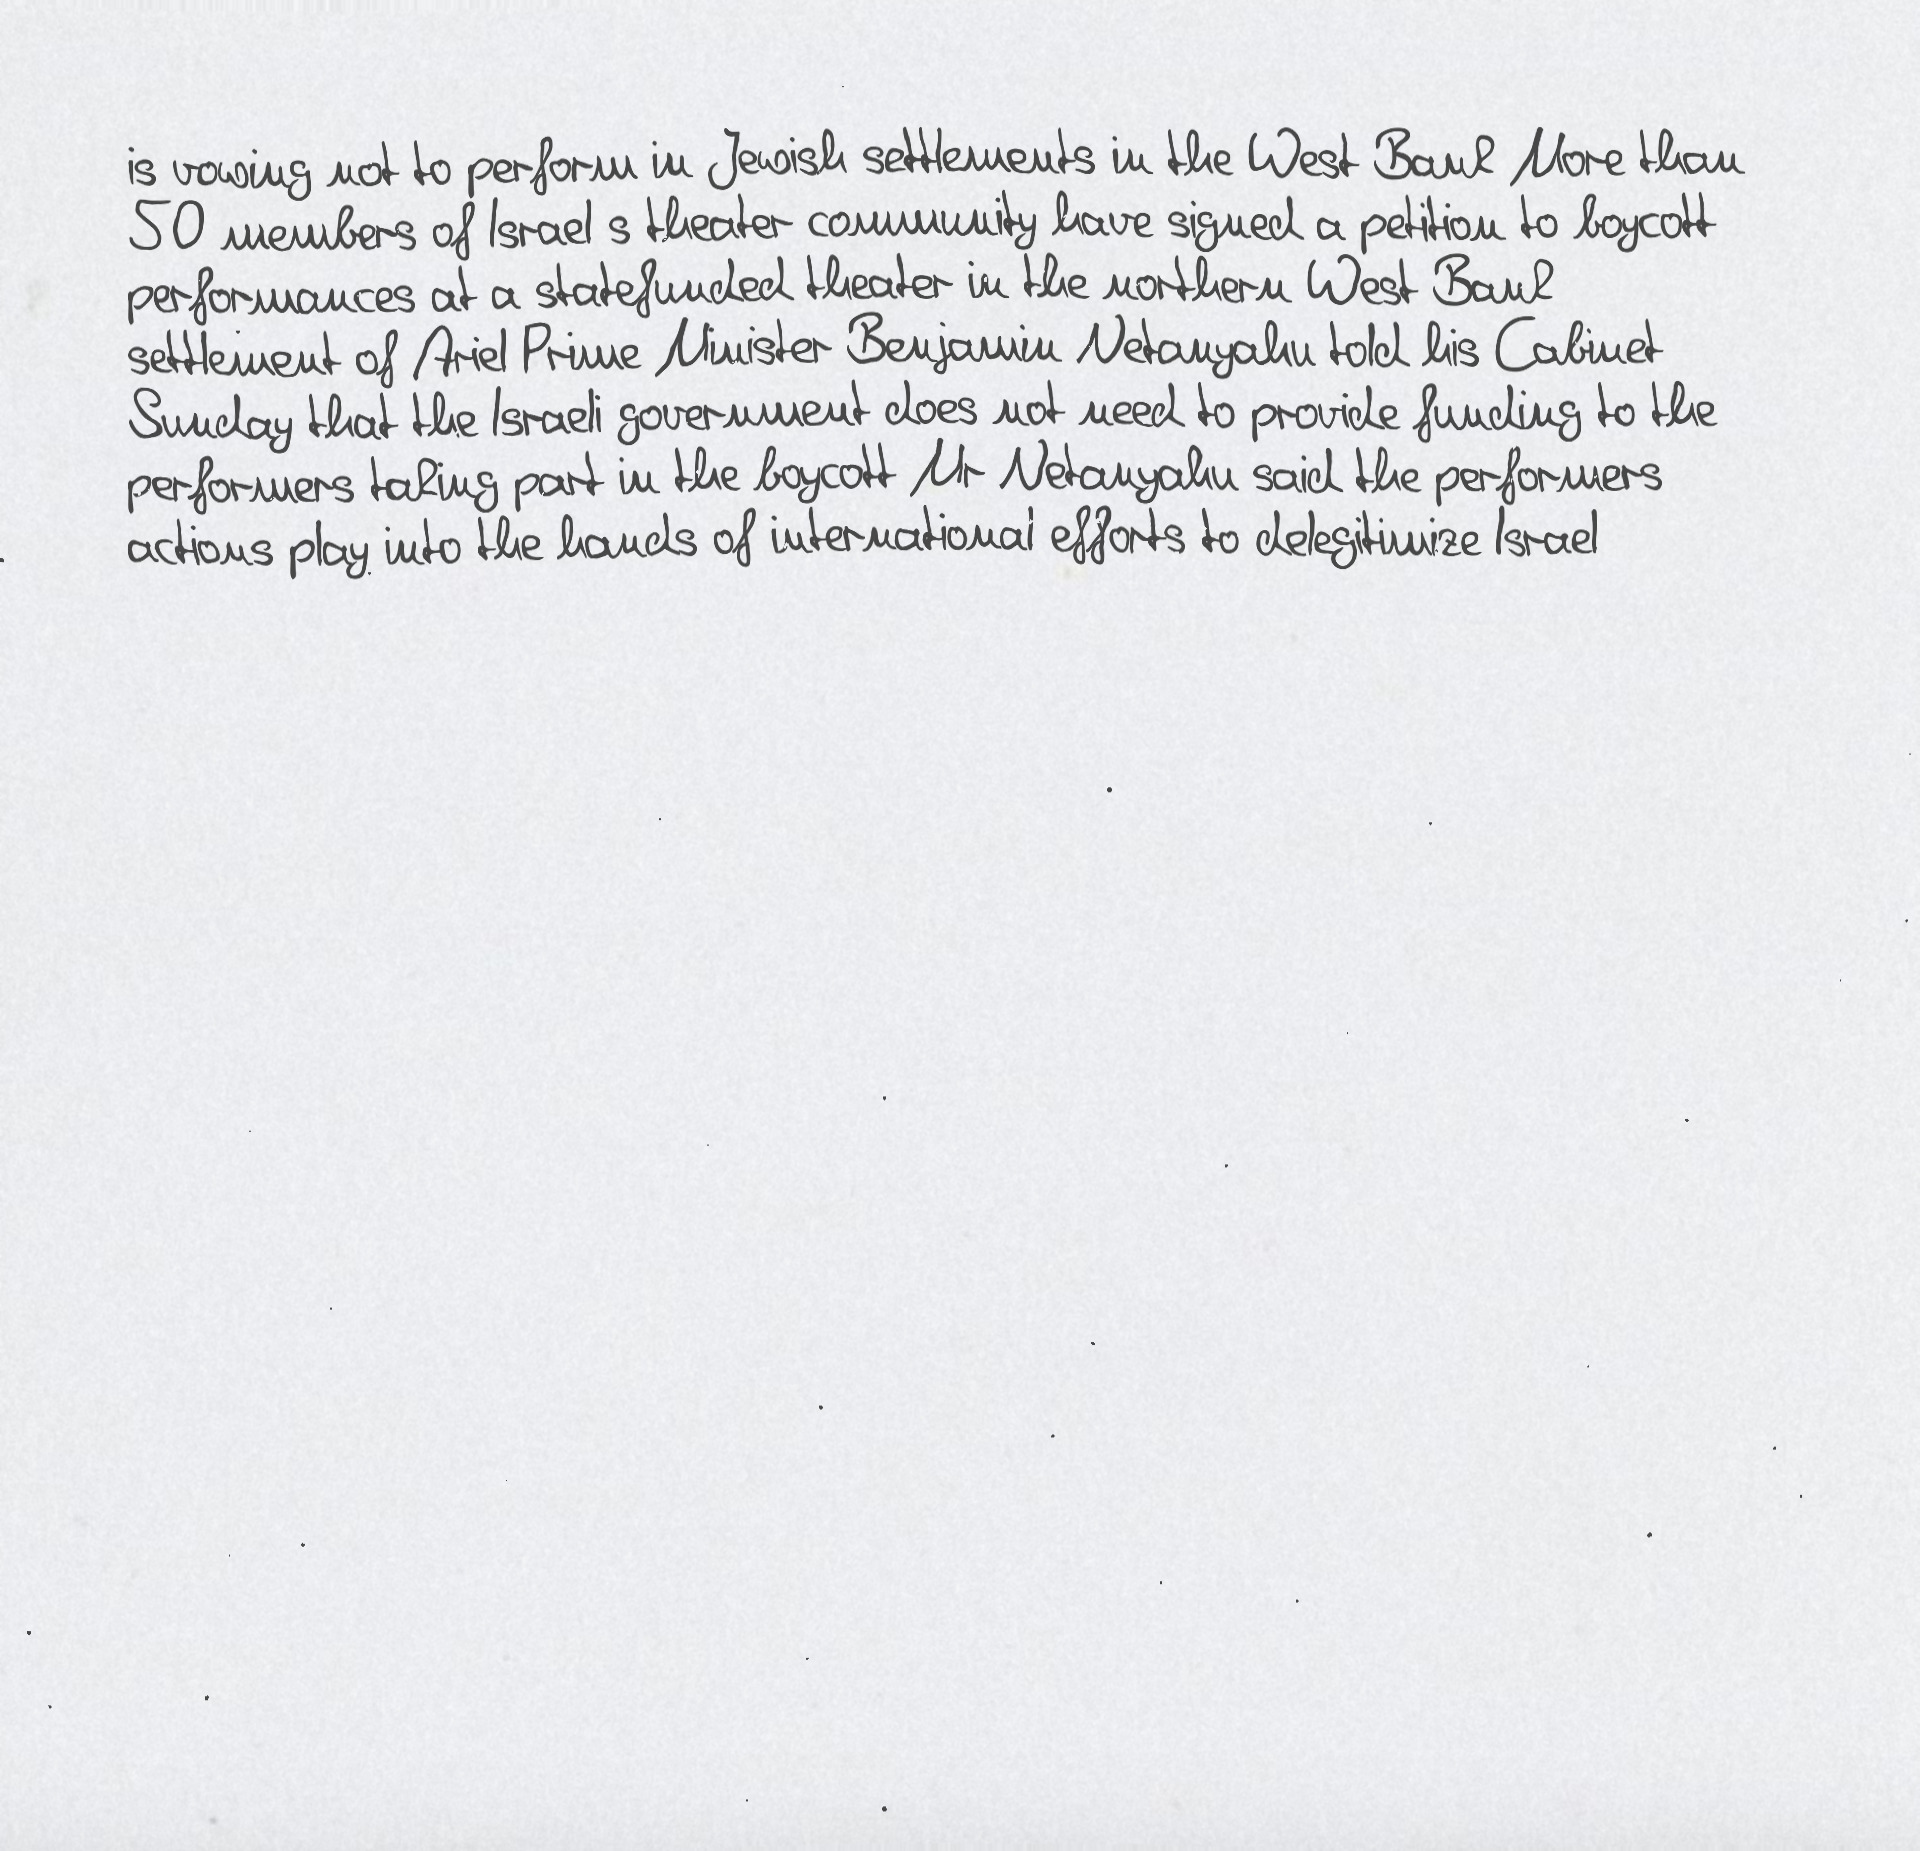 is vowing not to perform in Jewish settlements in the West Bank More than
50 members of Israel s theater community have signed a petition to boycott
performances at a statefunded theater in the northern West Bank
settlement of Ariel Prime Minister Benjamin Netanyahu told his Cabinet
Sunday that the Israeli government does not need to provide funding to the
performers taking part in the boycott Mr Netanyahu said the performers
actions play into the hands of international efforts to delegitimize Israel